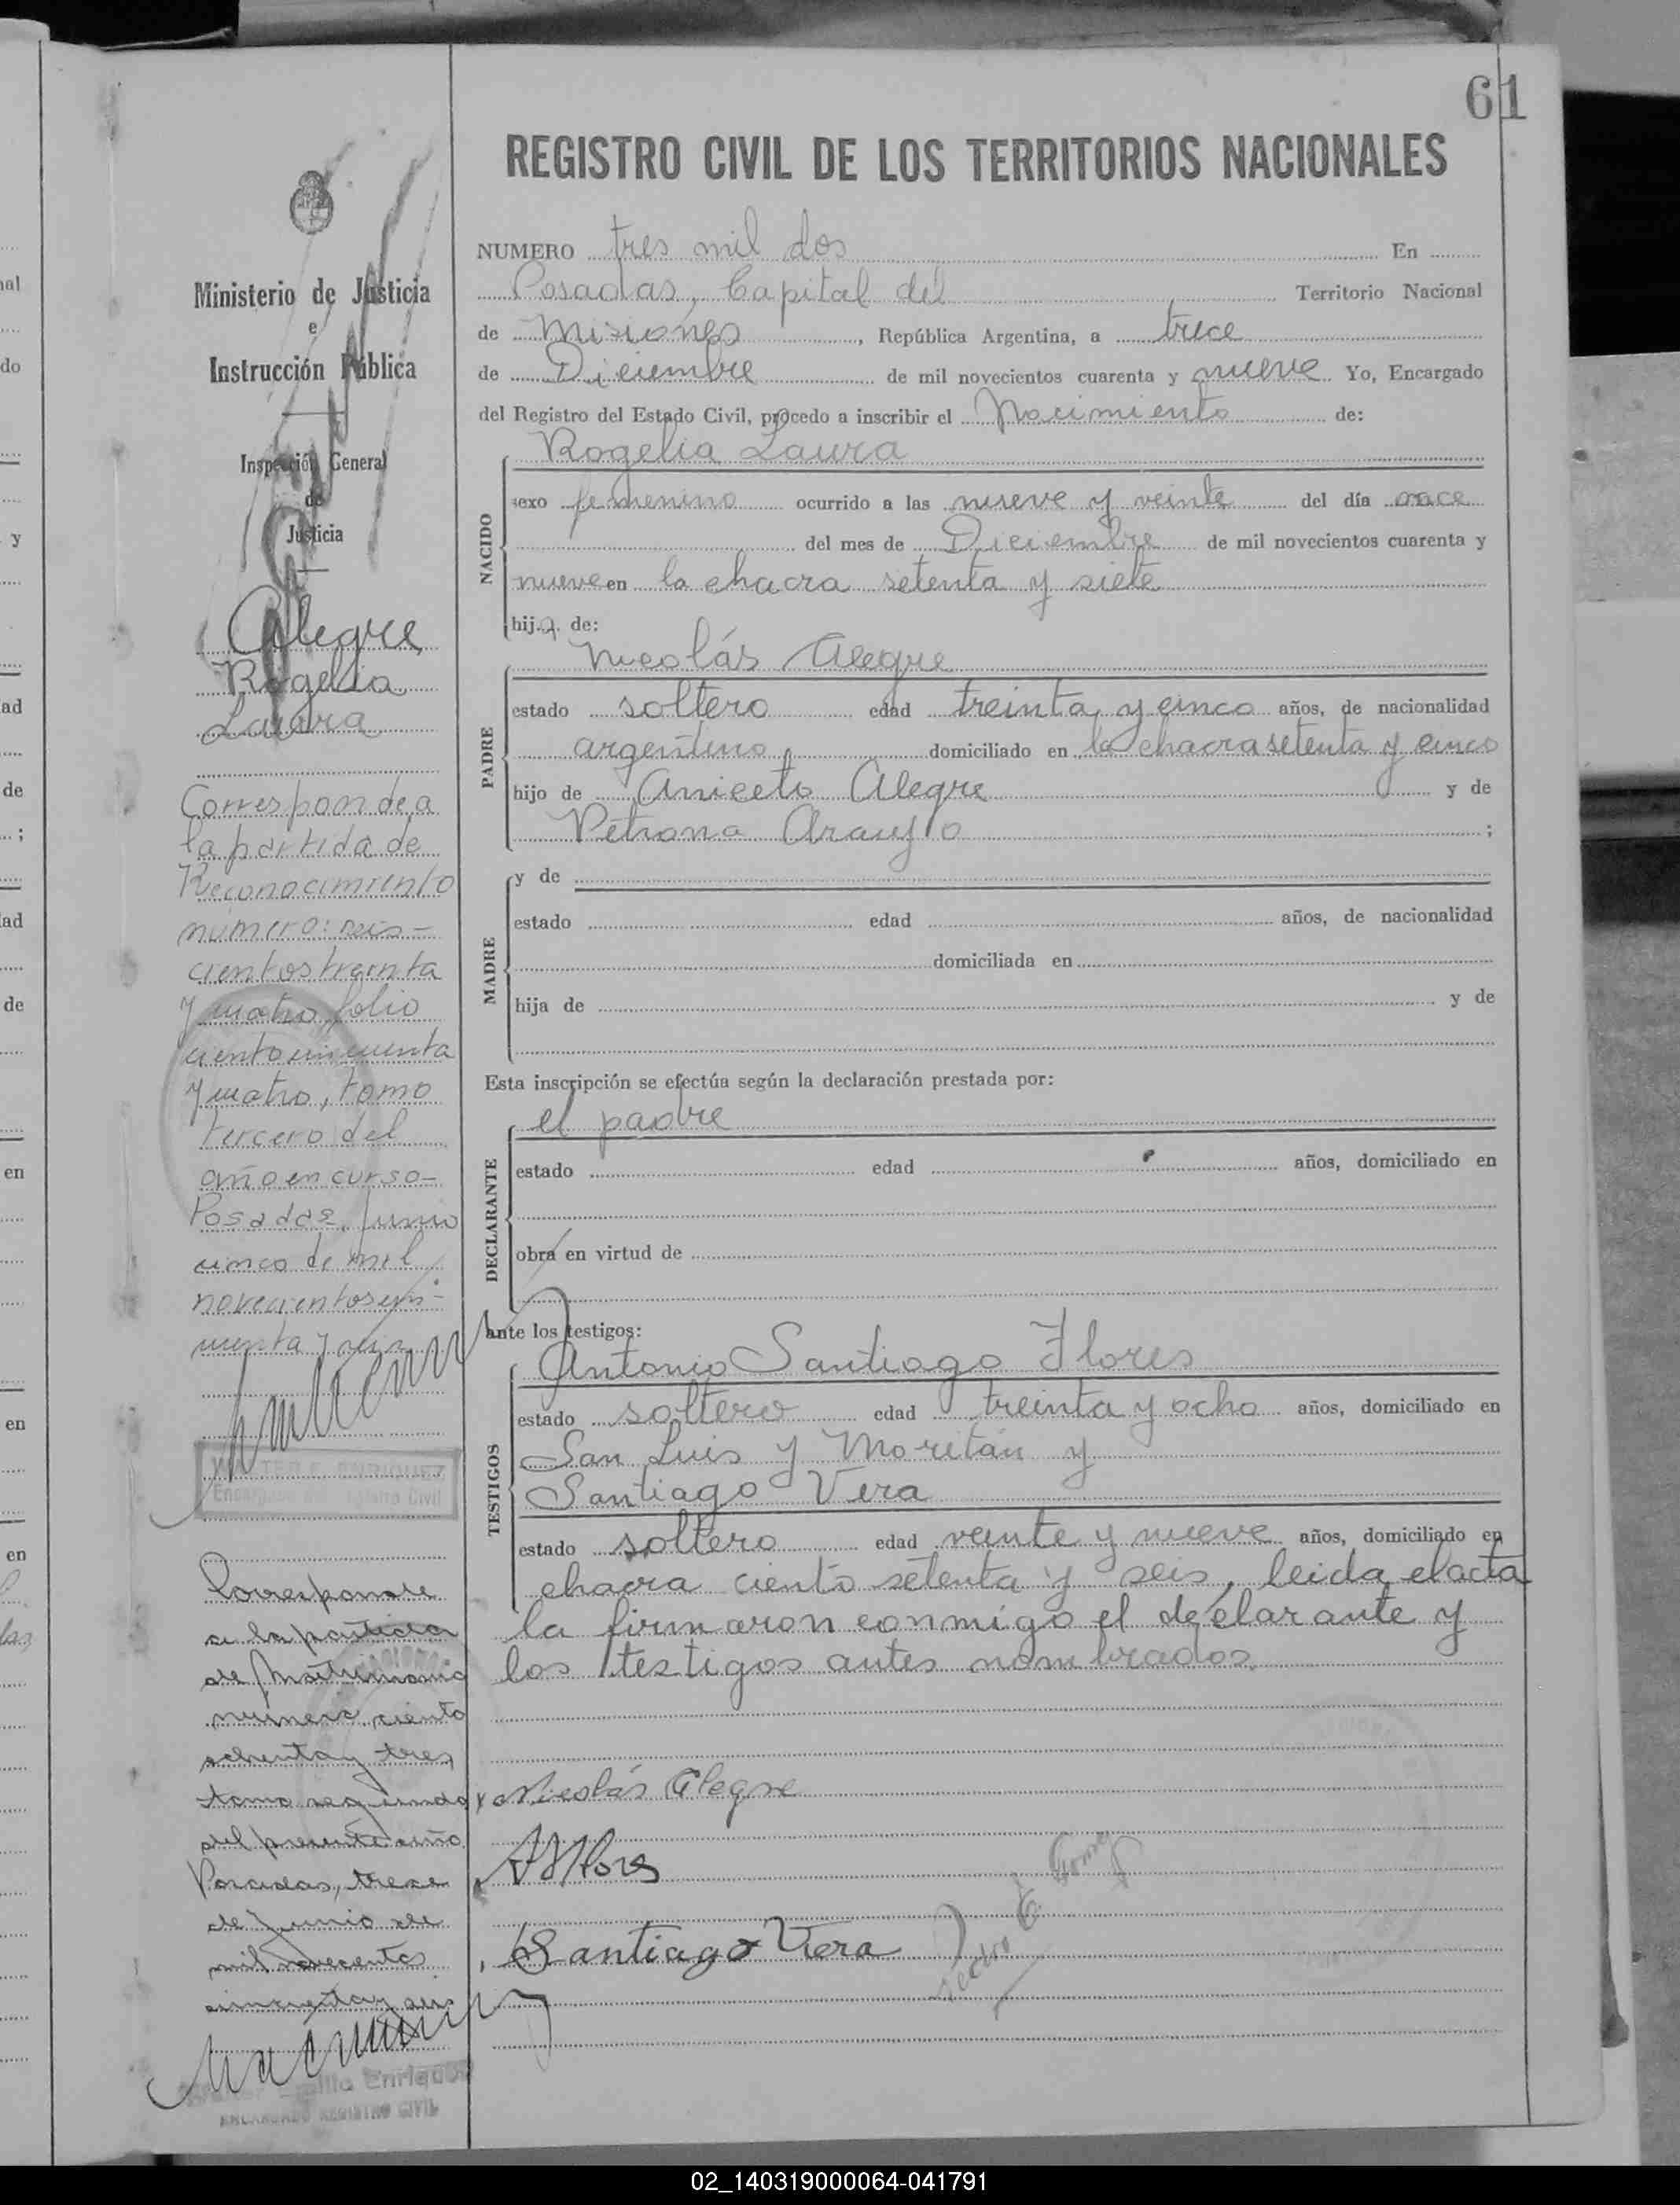 61
REGISTRO CIVIL DE LOS TERRITORIOS NACIONALES
NUMERO tres mil dos En
Posadas, Capital del Territorio Nacional
de Misiones, República Argentina, a trece
de Diciembre de mil novecientos cuarenta y nueve Yo, Encargado
del Registro del Estado Civil, procedo a inscribir el Nacimiento de:
Rogelia Laura
NACIDO
sexo femenino ocurrido a las nueve y veinte del día once
del mes de Diciembre de mil novecientos cuarenta y
nueve en la chacra setenta y siete
hija de:
Nicolás Alegre
PADRE
estado soltero edad treinta y cinco años, de nacionalidad
argentino, domiciliado en la chacra setenta y cinco
hijo de Aniceto Alegre y de
Petrona Araujo ;
MADRE
y de
estado edad años, de nacionalidad
domiciliada en
hija de y de
Esta inscripción se efectúa según la declaración prestada por:
el padre
DECLARANTE
estado edad años, domiciliado en
obra en virtud de
ante los testigos:
Antonio Santiago Flores
TESTIGOS
estado soltero edad treinta y ocho años, domiciliado en
San Luis y Moritán y
Santiago Vera
estado soltero edad veinte y nueve años, domiciliado en
chacra ciento setenta y seis, leida el acta
la firmaron conmigo el declarante y
los testigos antes nombrados.
Nicolás Alegre
ASFlores
Santiago Viera
Ministerio de Justicia
e
Instrucción Pública
Inspección General
de
Justicia
Alegre
Rogelia
Laura
Corresponde a
la partida de
Reconocimiento
número: seis-
cientos treinta
y cuatro, folio
ciento cincuenta
y cuatro, tomo
tercero del
año en curso-
Posadas, junio
cinco de mil
novecientos cin-
cuenta y seis
WALTER E. ENRIQUEZ
Encargado del Registro Civil
Corresponde
a la partida
de Matrimonio
número ciento
ochenta y tres,
tomo segundo
del presente año
Posadas, trece
de Junio de
mil novecientos
cincuenta y seis
Walter Emilio Enriquez
ENCARGADO REGISTRO CIVIL
02_140319000064-041791